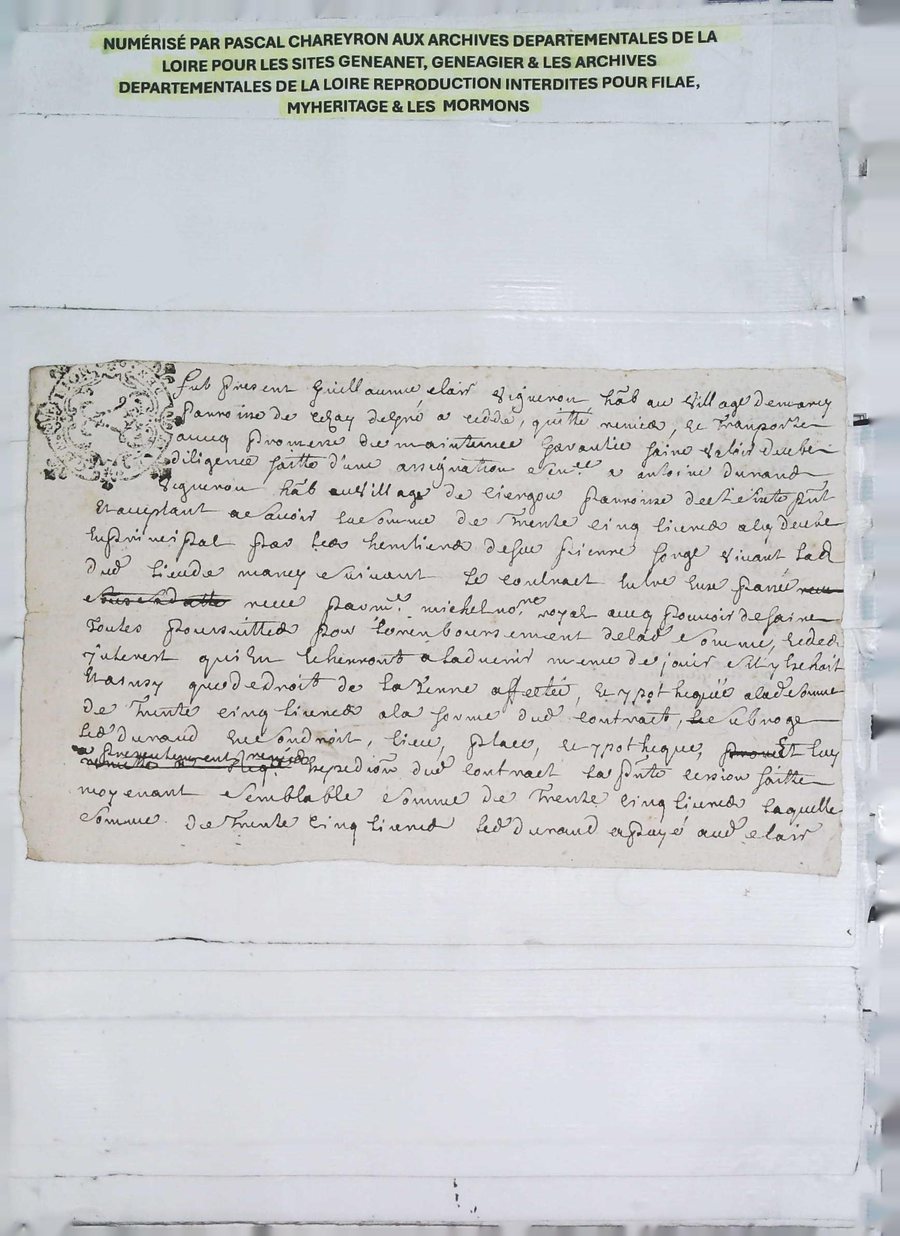 NUMÉRISÉ PAR PASCAL CHAREYRON AUX ARCHIVES DEPARTEMENTALES DE LA
LOIRE POUR LES SITES GENEANET, GENEAGIER & LES ARCHIVES
DEPARTEMENTALES DE LA LOIRE REPRODUCTION INTERDITES POUR FILAE,
MYHERITAGE & LES MORMONS
fut present Guillaume clair vigneron hab au village de marcy
parroisse de cezay a ceddé, quitté remis, et transporte
avecq promesse de maintenue garantie faire valoir
diligence faitte d'une assignation a antoine durand
vigneron hab au village de parroisse de pnt
et acceptant a scavoir la somme de trente cinq livres a luy deube
en principal par les heritiers de feu pierre forge vivant lab
dud lieu de marcy suivant le contract entre eux passé
receu par me michel nore royal avecq pouvoir de faire
toutes poursuittes pour le remboursement de lad somme, et des
interest qui en echerront a ladvenir mesme de jouir sil y eschoit
et ainsy que de droit de la terre affectée, et ypothequée a lad somme
de trente cinq livres a la forme dud contract, le subroge
led durand en son droit, lieu, place, et ypotheque, et luy
a presentement remis expedion dud contract la pnte cession faitte
moyenant semblable somme de trente cinq livres laquelle
somme de trente cinq livres led durand a payé aud clair